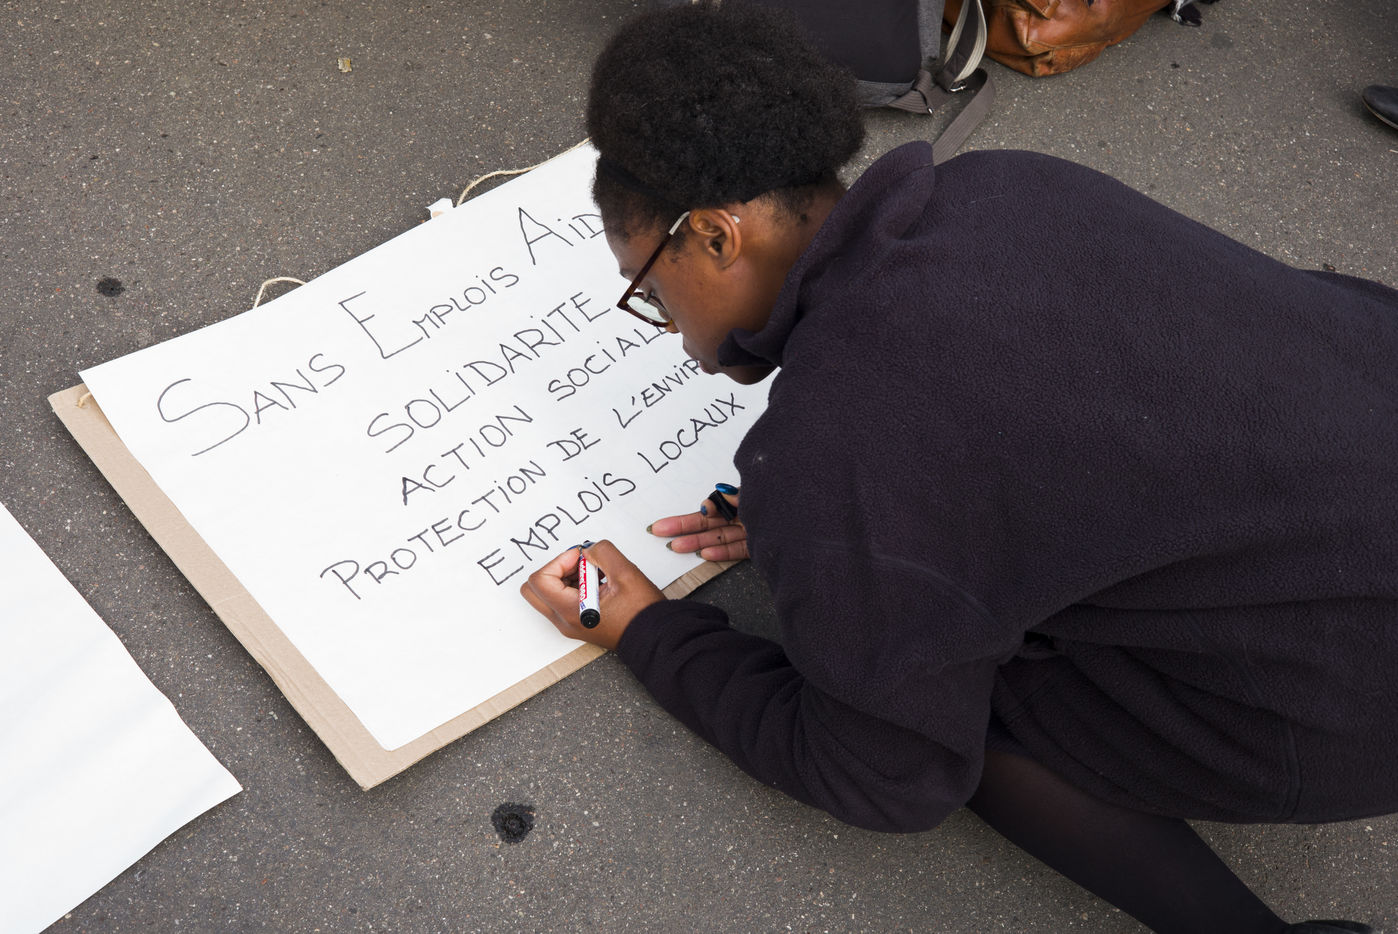 SANS EMPLOIS AID
SOLIDARITE
ACTION SOCIAL
PROTECTION DE L'ENVIR
EMPLOIS LOCAUX